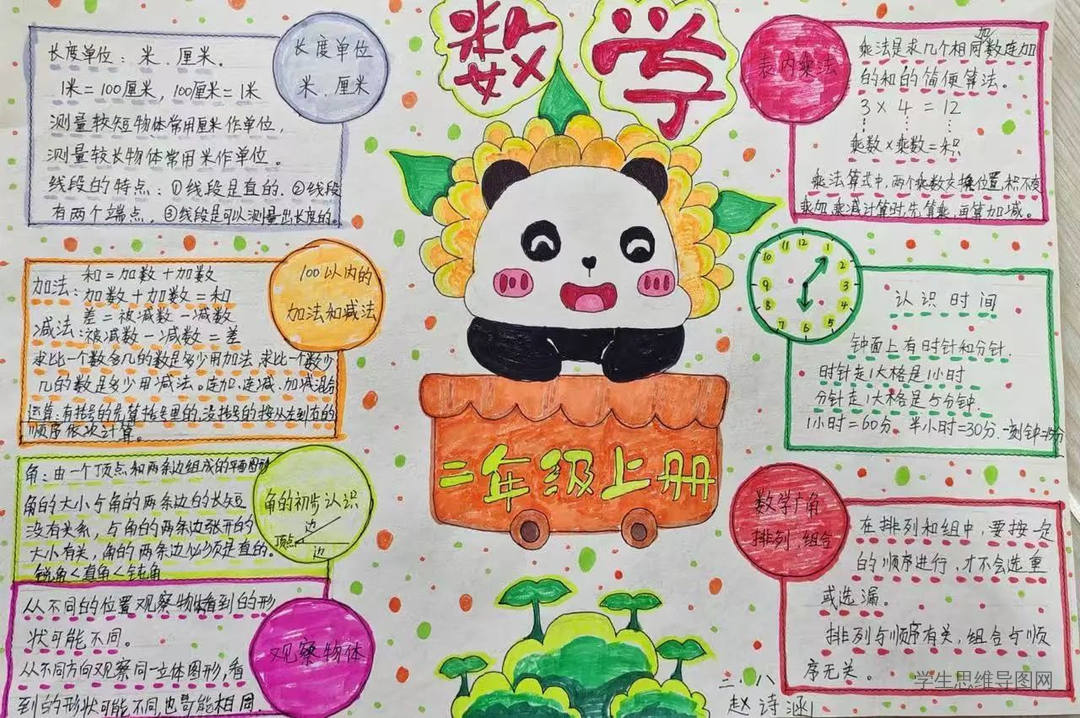 数学
长度单位
米、厘米
长度单位：米、厘米。
1米=100厘米，100厘米=1米
测量较短物体常用厘米作单位，
测量较长物体常用米作单位。
线段的特点：①线段是直的。②线段
有两个端点，③线段是可以测量出长度的。
100以内的
加法和减法
和=加数+加数
加法：加数+加数=和
差=被减数-减数
减法：被减数-减数=差
求比一个数多几的数是多少用加法，求比一个数少
几的数是多少用减法。连加、连减、加减混合
运算：有括号的先算括号里的，没括号的按从左到右的
顺序依次计算。
角的初步认识
边
顶点
边
角：由一个顶点和两条边组成的平面图形
角的大小与角的两条边的长短
没有关系，与角的两条边张开的
大小有关，角的两条边必须是直的。
锐角<直角<钝角
观察物体
从不同的位置观察物体看到的形
状可能不同。
从不同方向观察同一立体图形，看
到的形状可能不同，也可能相同。
二年级上册
表内乘法
乘法是求几个相同加数连加
的和的简便算法。
3 × 4 = 12
乘数×乘数=积
乘法算式中，两个乘数交换位置，积不变
乘加、乘减计算时，先算乘，再算加减。
12
1
2
3
4
5
6
7
8
9
10
11
认识时间
钟面上有时针和分针.
时针走1大格是1小时
分针走1大格是5分钟.
1小时=60分、半小时=30分、一刻钟=15分
数学广角
排列、组合
在排列和组中，要按一定
的顺序进行，才不会选重
或选漏。
排列与顺序有关，组合与顺
序无关。
二、八
赵诗涵
学生思维导图网